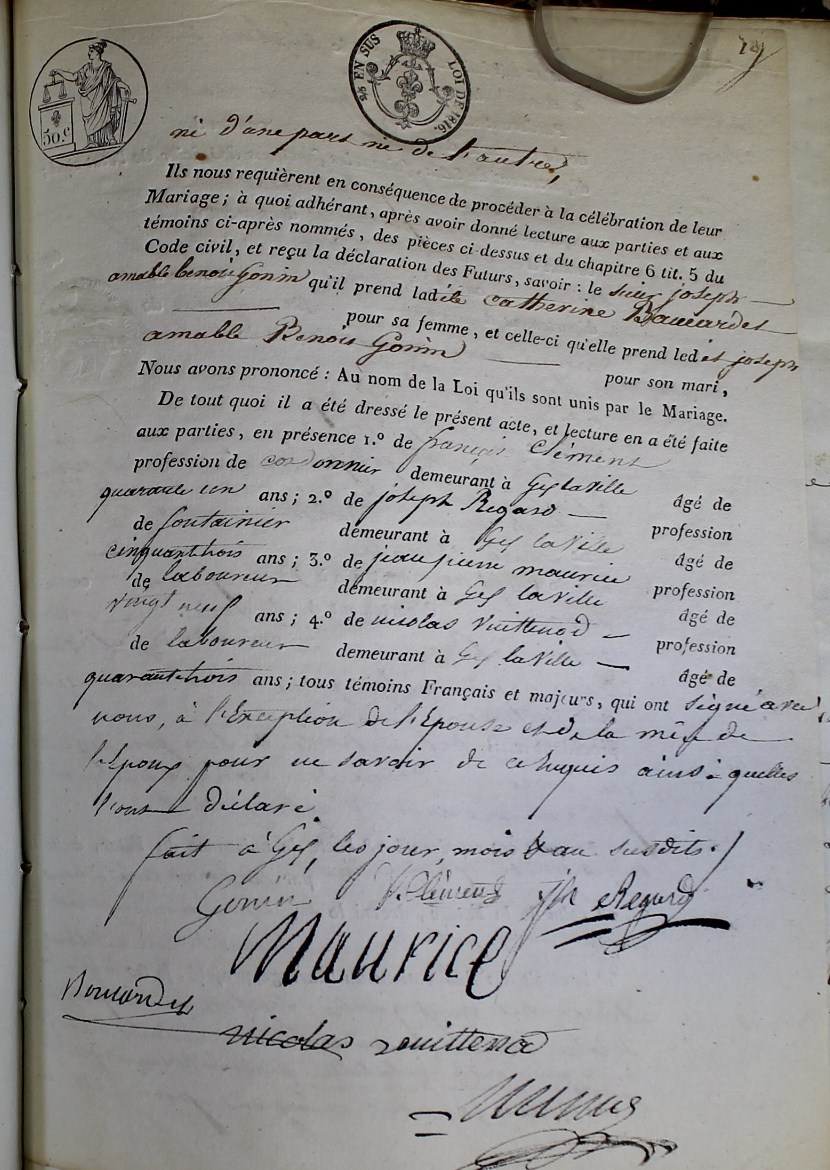 19
50.c
EN SUS LOI DE 1816.
ni d'une part ni de l'autre,
Ils nous requièrent en conséquence de procéder à la célébration de leur
Mariage; à quoi adhérant, après avoir donné lecture aux parties et aux
témoins ci-après nommés, des pièces ci-dessus et du chapitre 6 tit. 5 du
Code civil, et reçu la déclaration des Futurs, savoir : le sieur joseph
amable benoit Gonin qu'il prend ladite Catherine
pour sa femme, et celle-ci qu'elle prend ledit joseph
amable Benoit Gonin pour son mari,
Nous avons prononcé : Au nom de la Loi qu'ils sont unis par le Mariage.
De tout quoi il a été dressé le présent acte, et lecture en a été faite
aux parties, en présence 1.º de françois Clément
profession de cordonnier demeurant à Gex la ville âgé de
quarante un ans; 2.º de joseph Regard profession
de fontainier demeurant à Gex la ville âgé de
cinquante trois ans; 3.º de jean pierre maurice profession
de laboureur demeurant à Gex la ville âgé de
vingt neuf ans; 4.º de nicolas Vuittenod profession
de laboureur demeurant à Gex la ville âgé de
quarante trois ans; tous témoins Français et majeurs, qui ont signé avec
nous, à l'Exception de l'Epouse et de la mère de
l'Epoux pour ne savoir de ce Requis ainsi quelles
l'ont déclaré.
fait à Gex, les jour, mois & an susdits.
Gonin Clément Jph Regard
Maurice
nicolas vuittenod